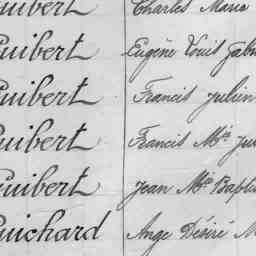 uibert Charles Marie
uibert Eugène Louis Gab
uibert Francis Julien
uibert Francis Mie Ju
uibert Jean Mie Baptis
uichard Ange Désiré M